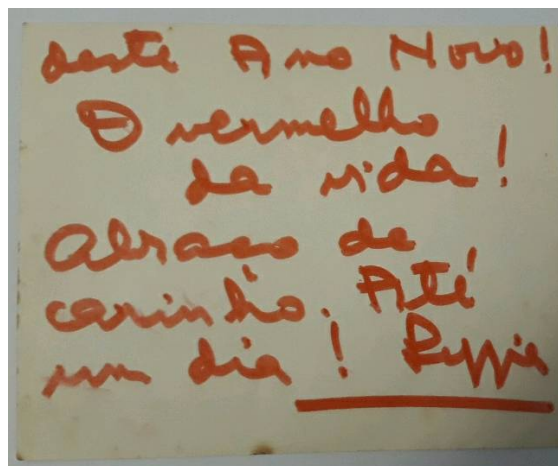 deste Ano Novo!
O vermelho
da vida!
Abraço de
carinho. Até
um dia!